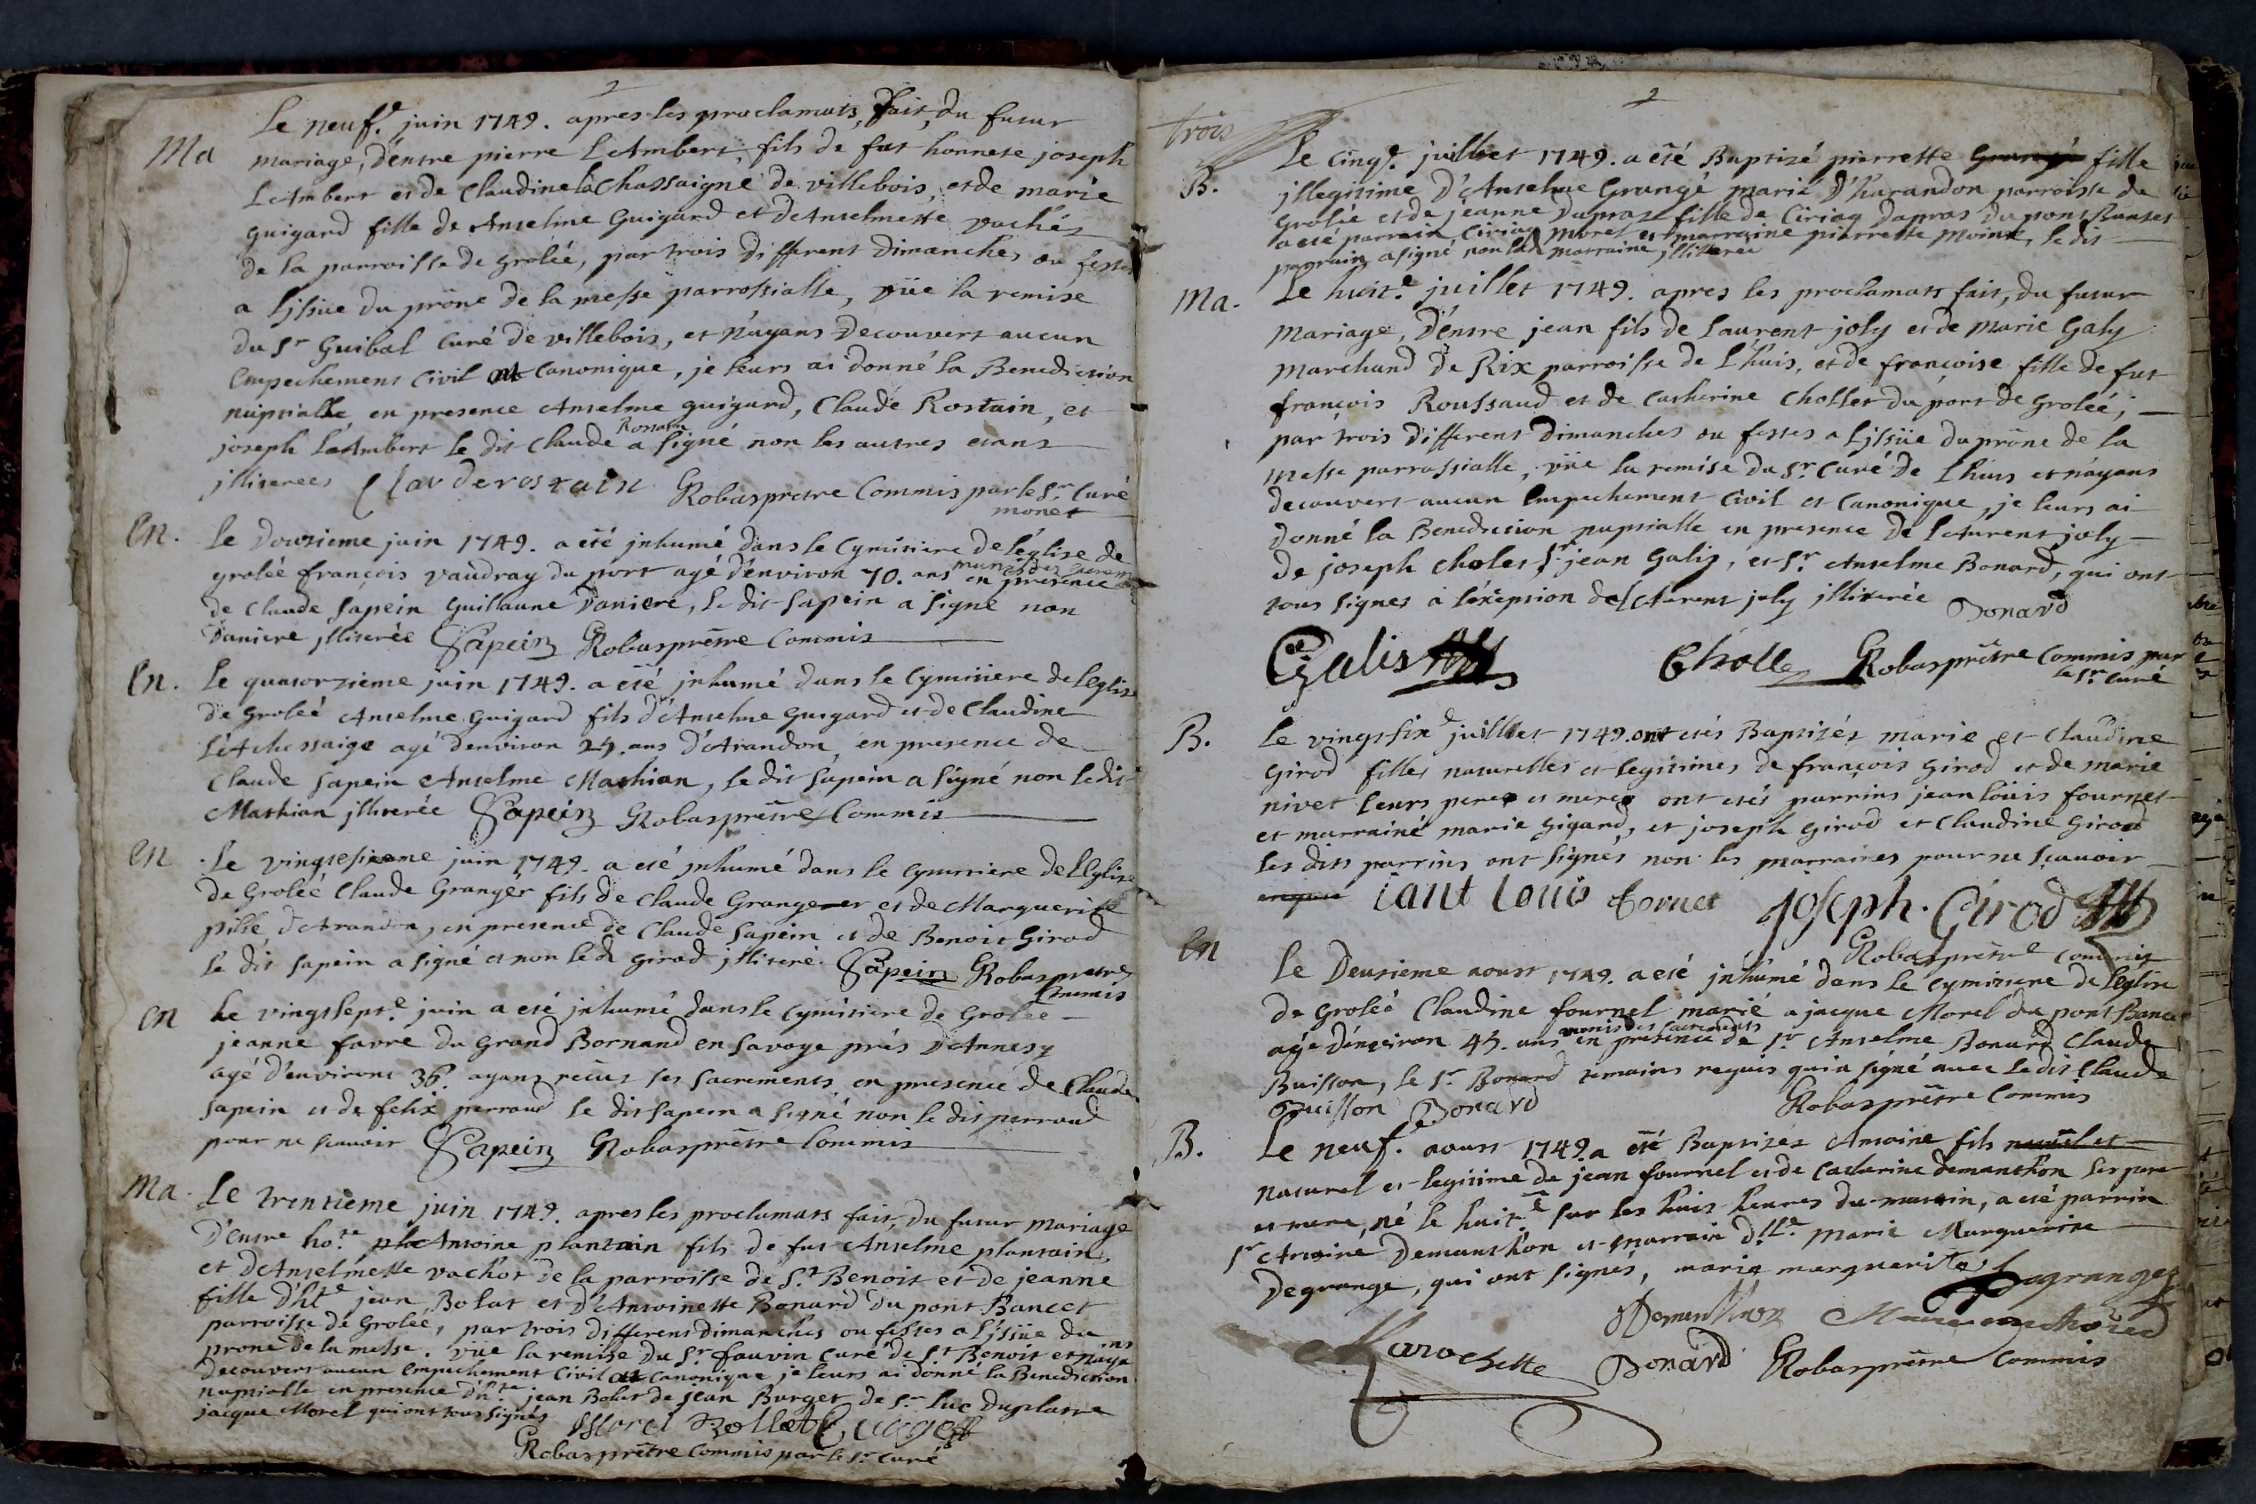 2
Le neuf.e juin 1749. apres les proclamats, fait, du futur
Ma mariage, d'entre pierre LAmbert, fils de fut honnete joseph
LAmbert et de Claudine la Chassaigne de villebois, et de marie
guigard fille de Anselme Guigard et d'Anselmette vachés
de la parroisse de groleé, par trois different dimanches ou festes
a l'jssüe du prône de la messe parrossialle, vüe la remise
du Sr Guibal Curé de villebois, et n'ayans decouvert aucun
Empechement Civil et Canonique, je leurs ai donné la Benediction
nuptialle en presence Anselme guigard, Claude Rostain, et
joseph LAmbert le dit Claude Rostain a signé non les autres etans
jlliterees Claude rostain Robasprêtre Commis par le Sr. Curé
monet
En. Le Douzieme juin 1749. a eté jnhumé dans le Cymitiere de l'église de
groleé françois vaudray du port agé d'environ 70. ans muni des sacrem en presence
de Claude Sapein Guillaune Daniere, le dit Sapein a signé non
Daniere jlliterée Sapein Robasprêtre Commis
En. Le quatorzieme juin 1749. a eté jnhumé dans le Cymitiere de l'Eglise
de Groleé Anselme Guigard fils d'Anselme Guigard et de Claudine
LAchassaige agé denviron 25. ans d'Arandon en presence de
Claude Sapein Anselme Mathian, le dit Sapein a signé non le dit
Mathian jlliterée Sapein Robasprêtre Commis
En . Le vingtesixeme juin 1749. a eté jnhumé dans le Cymitiere de l'Eglise
de Groleé Claude Granger fils de Claude Grangerer et de Marguerite
pille d'Arandon, en presence de Claude Sapein et de Benoit Girod
le dit Sapein a signé et non le d. Girod jlliteré. Sapein Robasprêtre
Commis
En Le vingtsept.e juin a eté jnhumé dans le Cymitiere de Groleé
jeanne favre du Grand Bornand en Savoye prés d'Annesy
agé d'environs 36. ayans reçus ses sacrements en presence de Claude
Sapein et de felix perraud le dit Sapein a signé non le dit perraud
pour ne scavoir Sapein Robasprêtre Commis
Ma. Le trentieme juin 1749. apres les proclamats fait, du futur mariage
d'entre ho.te pla Antoine plantain fils de fut Anselme plantain,
et d'Anselmette vachot de la parroisse de S.t Benoit et de jeanne
fille d'ht.e jean Bolat et d'Antoinette Bonard du pont Bancet
parroisse de Groleé, par trois differens dimanches ou festes a l'jssüe du
prone de la messe. vüe la remise du Sr. fauvin Curé de St Benoit et n'ayans
decouvert aucun Empechement Civil et Canonique je leurs ai donné la Benediction
nuptialle en presence d'h.te jean Bolat de jean Burget de Sr. Luc Duplatre
jacque Morel qui ont tous signés Morel Bollat Burget
Robasprêtre Commis par le Sr. Curé
2
trois
Le Cinq.e juillet 1749. a eté Baptisé pierrette Grangé fille
B. jllegitime D'Anselme Grangé marié D'harandon parroisse de
Groleé et de jeanne Dapraz fille de Ciriaq dapras du pont Banset
a eté parrain Ciriaq Morel et marraine pierrette Moine, le dit
parrain a signé non la d marraine jlliteree
Ma. Le huit.e juillet 1749. apres les proclamats fait, du futur
Mariage, d'entre jean fils de Laurent joly et de Marie Galy
marchand de Rix parroisse de Lhuis, et de françoise fille de fut
françois Roussaud et de Catherine Chollet du port de Groleé,
par trois different dimanches ou festes a l'jssüe du prône de la
messe parrossialle, vüe la remise du Sr. Curé de Lhuis et n'ayans
decouvert aucun Empechement Civil et Canonique, je leurs ai
donné la Benediction nuptialle en presence de LAurent joly
de joseph Cholet Sr jean Galis, et Sr. Anselme Bonard, qui ont
tous signes a l'exeption de LAurent joly jlliterée Bonard
Galis Cholle Robasprêtre Commis par
le Sr. Curé
B. Le vingtsix.e juillet 1749. ont etés Baptisés marie et Claudine
Girod filles naturelles et legitimes de françois Girod et de marie
nivet leurs pere et mere ont etés parrins jean loüis fournet
et marrainé marie Gigard, et joseph Girod et Claudine Girod
les dits parrins ont signés non les marraines pour ne sçavoir
iant louis fornet joseph. Girod
Robasprêtre Commis
En Le Deuxieme aoust 1749. a eté jnhumé dans le cymitiere de l'Eglise
de Groleé Claudine fournel marié a jacque Morel du pont Bancet
agé d'environ 45. ans munis des sacrements en presence de Sr Anselme Bonard Claude
Buisson, le Sr. Bonard temains requis qui a signé avec le dit Claude
Buisson Bonard Robasprêtre Commis
B. Le neuf.e aoust 1749. a eté Baptisés Antoine fils naturel et
Naturel et legitime de jean fournel et de Catarine demanthon ses pere
et mere, né le huit.e sur les huit heures du matin, a eté parrin
Sr Antoine Demanthon et marrain d.lle Marie Marguerite
Degrange, qui ont signés, marie marguerite Lagranges
Demanthon
Larochette Bonard Robasprêtre Commis